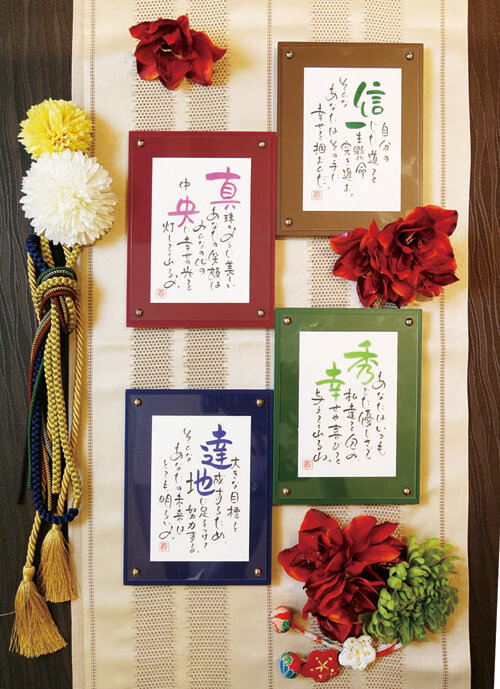 自分の
信じた道を
一生懸命突き進む。
そんなあなたはその手で
幸せを掴む
真珠のように美しい
あなたの笑顔は
みんなの心の
中央に幸せの光を
灯してくれるよ。
あなたはいつも
秀でた優しさで
私達を包み
幸せや喜びを
与えてくれるよ。
大きな目標を
達成するため
地に足をつけて
努力する。
そんな
あなたの未来は
とても明るいよ。